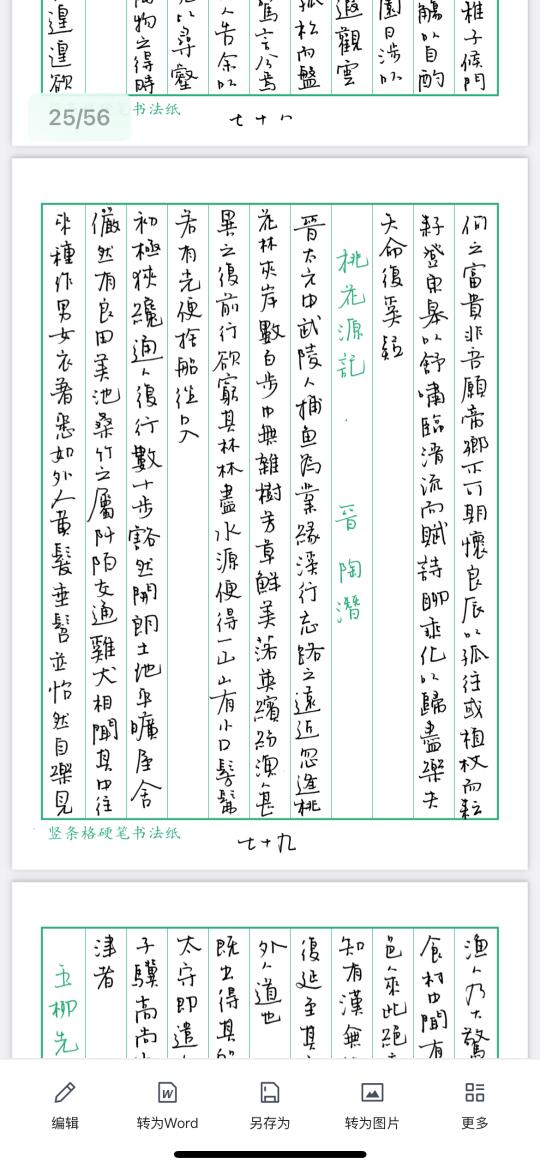 稚子候門
觴以自酌
園日涉以
遐觀雲
孤松而盤
駕言兮焉
人告余以
以尋壑
萬物之得時
遑遑欲
25/56
书法纸
七十八
何之富貴非吾願帝鄉不可期懷良辰以孤往或植杖而耘
耔登東皋以舒嘯臨清流而賦詩聊乘化以歸盡樂夫
天命復奚疑
桃花源記 · 晉 陶潛
晉太元中武陵人捕魚為業緣溪行忘路之遠近忽逢桃
花林夾岸數百步中無雜樹芳草鮮美落英繽紛漁人甚
異之復前行欲窮其林林盡水源便得一山山有小口髣髴
若有光便捨船從口入
初極狹纔通人復行數十步豁然開朗土地平曠屋舍
儼然有良田美池桑竹之屬阡陌交通雞犬相聞其中往
來種作男女衣著悉如外人黃髮垂髫並怡然自樂見
竖条格硬笔书法纸
七十九
漁人乃大驚
食村中聞有
邑來此絕
知有漢無
復延至其
外人道也
既出得其
太守即遣
子驥高尚
津者
五柳先
编辑
转为Word
另存为
转为图片
更多